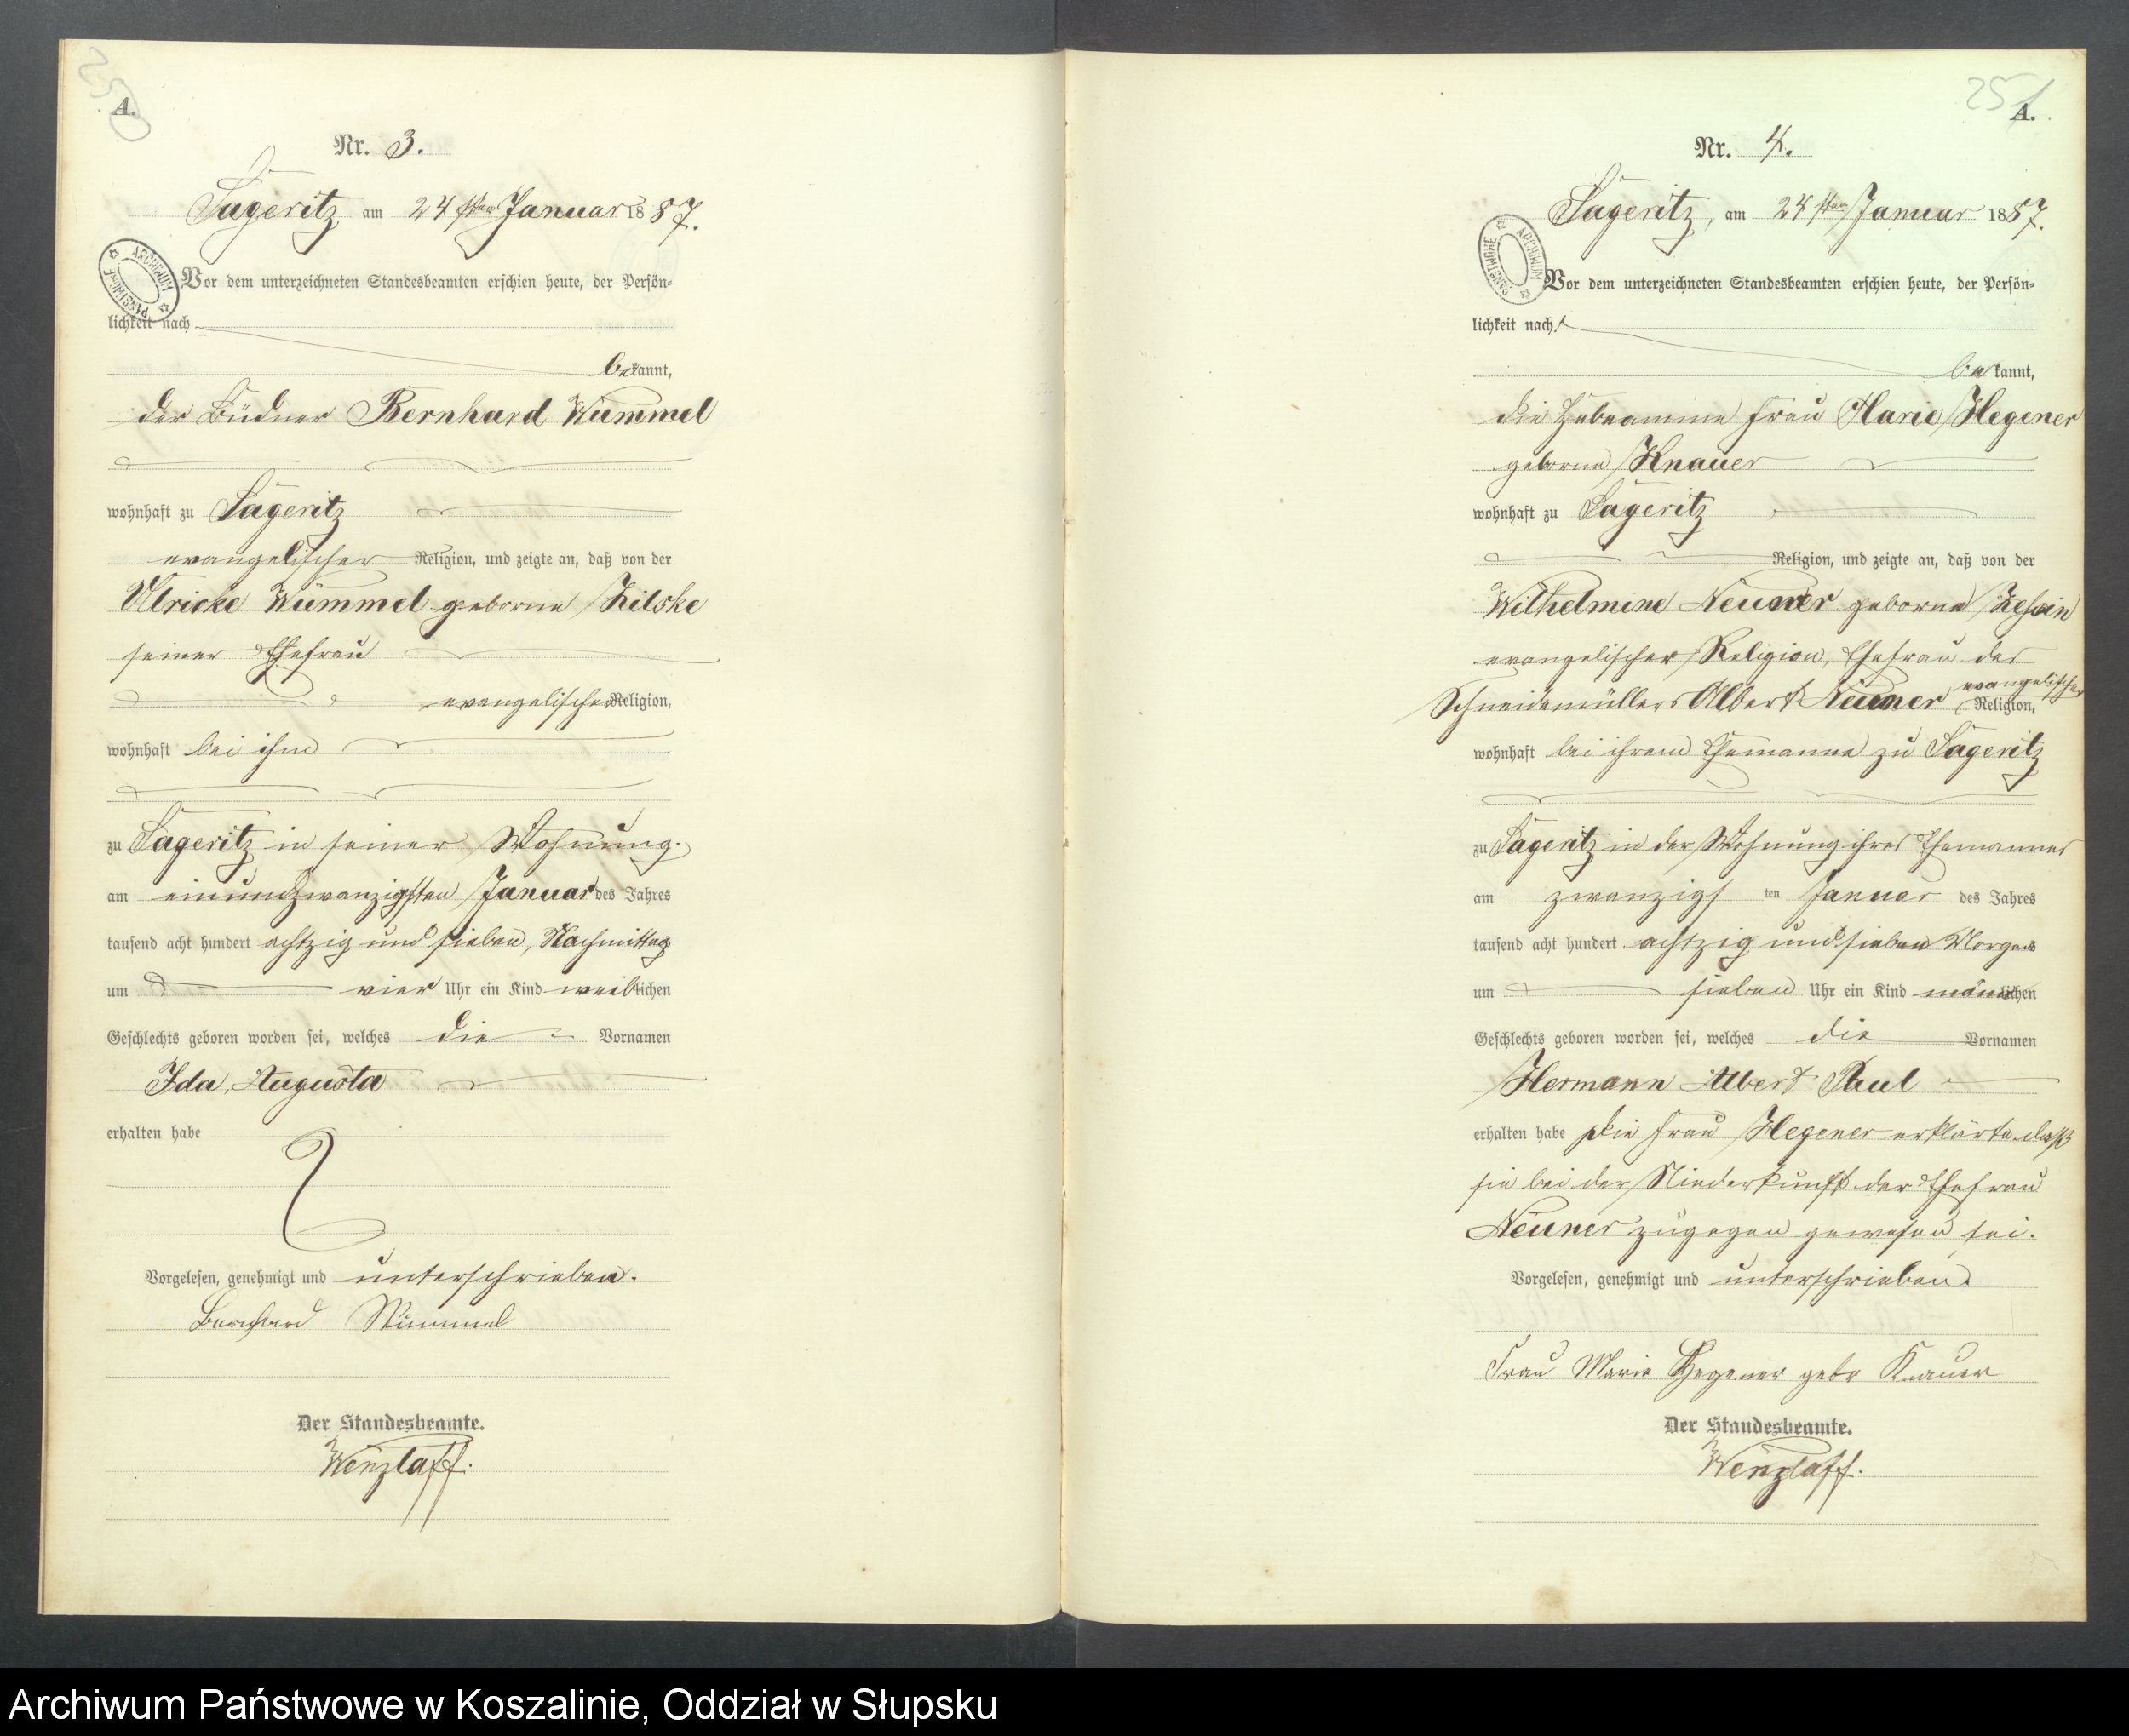 A.
Nr. 3.
Sageritz am 24sten Januar 1887.
ARCHIWUM PAŃSTWOWE
Vor dem unterzeichneten Standesbeamten erschien heute, der Persön-
lichkeit nach
bekannt,
der Büdner Bernhard Wümmel
wohnhaft zu Sageritz
evangelischer Religion, und zeigte an, daß von der
Ulricke Wümmel geborne Zilske
seiner Ehefrau
evangelischer Religion,
wohnhaft bei ihm
zu Sageritz in seiner Wohnung.
am einundzwanzigsten Januar des Jahres
tausend acht hundert achtzig und sieben, Nachmittag
um vier Uhr ein Kind weiblichen
Geschlechts geboren worden sei, welches die Vornamen
Ida, Augusta
erhalten habe
Vorgelesen, genehmigt und unterschrieben.
Bernhard Wümmel
Der Standesbeamte.
Wenzlaff.
251
A.
Nr. 4.
Sageritz, am 24sten Januar 1887.
ARCHIWUM PAŃSTWOWE
Vor dem unterzeichneten Standesbeamten erschien heute, der Persön-
lichkeit nach
bekannt,
die Hebeamme Frau Marie Hegener
geborne Knauer
wohnhaft zu Sageritz
Religion, und zeigte an, daß von der
Wilhelmine Neuner geborne
evangelischer Religion, Ehefrau des
Schneidemüllers Albert Neuner evangelischer Religion,
wohnhaft bei ihrem Ehemanne zu Sageritz
zu Sageritz in der Wohnung ihres Ehemannes
am zwanzigsten Januar des Jahres
tausend acht hundert achtzig und sieben Morgens
um sieben Uhr ein Kind männlichen
Geschlechts geboren worden sei, welches die Vornamen
Hermann Albert Paul
erhalten habe die Frau Hegener erklärte daß
sie bei der Niederkunft der Ehefrau
Neuner zugegen gewesen sei.
Vorgelesen, genehmigt und unterschrieben
Frau Marie Hegener gebr Knauer
Der Standesbeamte.
Wenzlaff.
Archiwum Państwowe w Koszalinie, Oddział w Słupsku